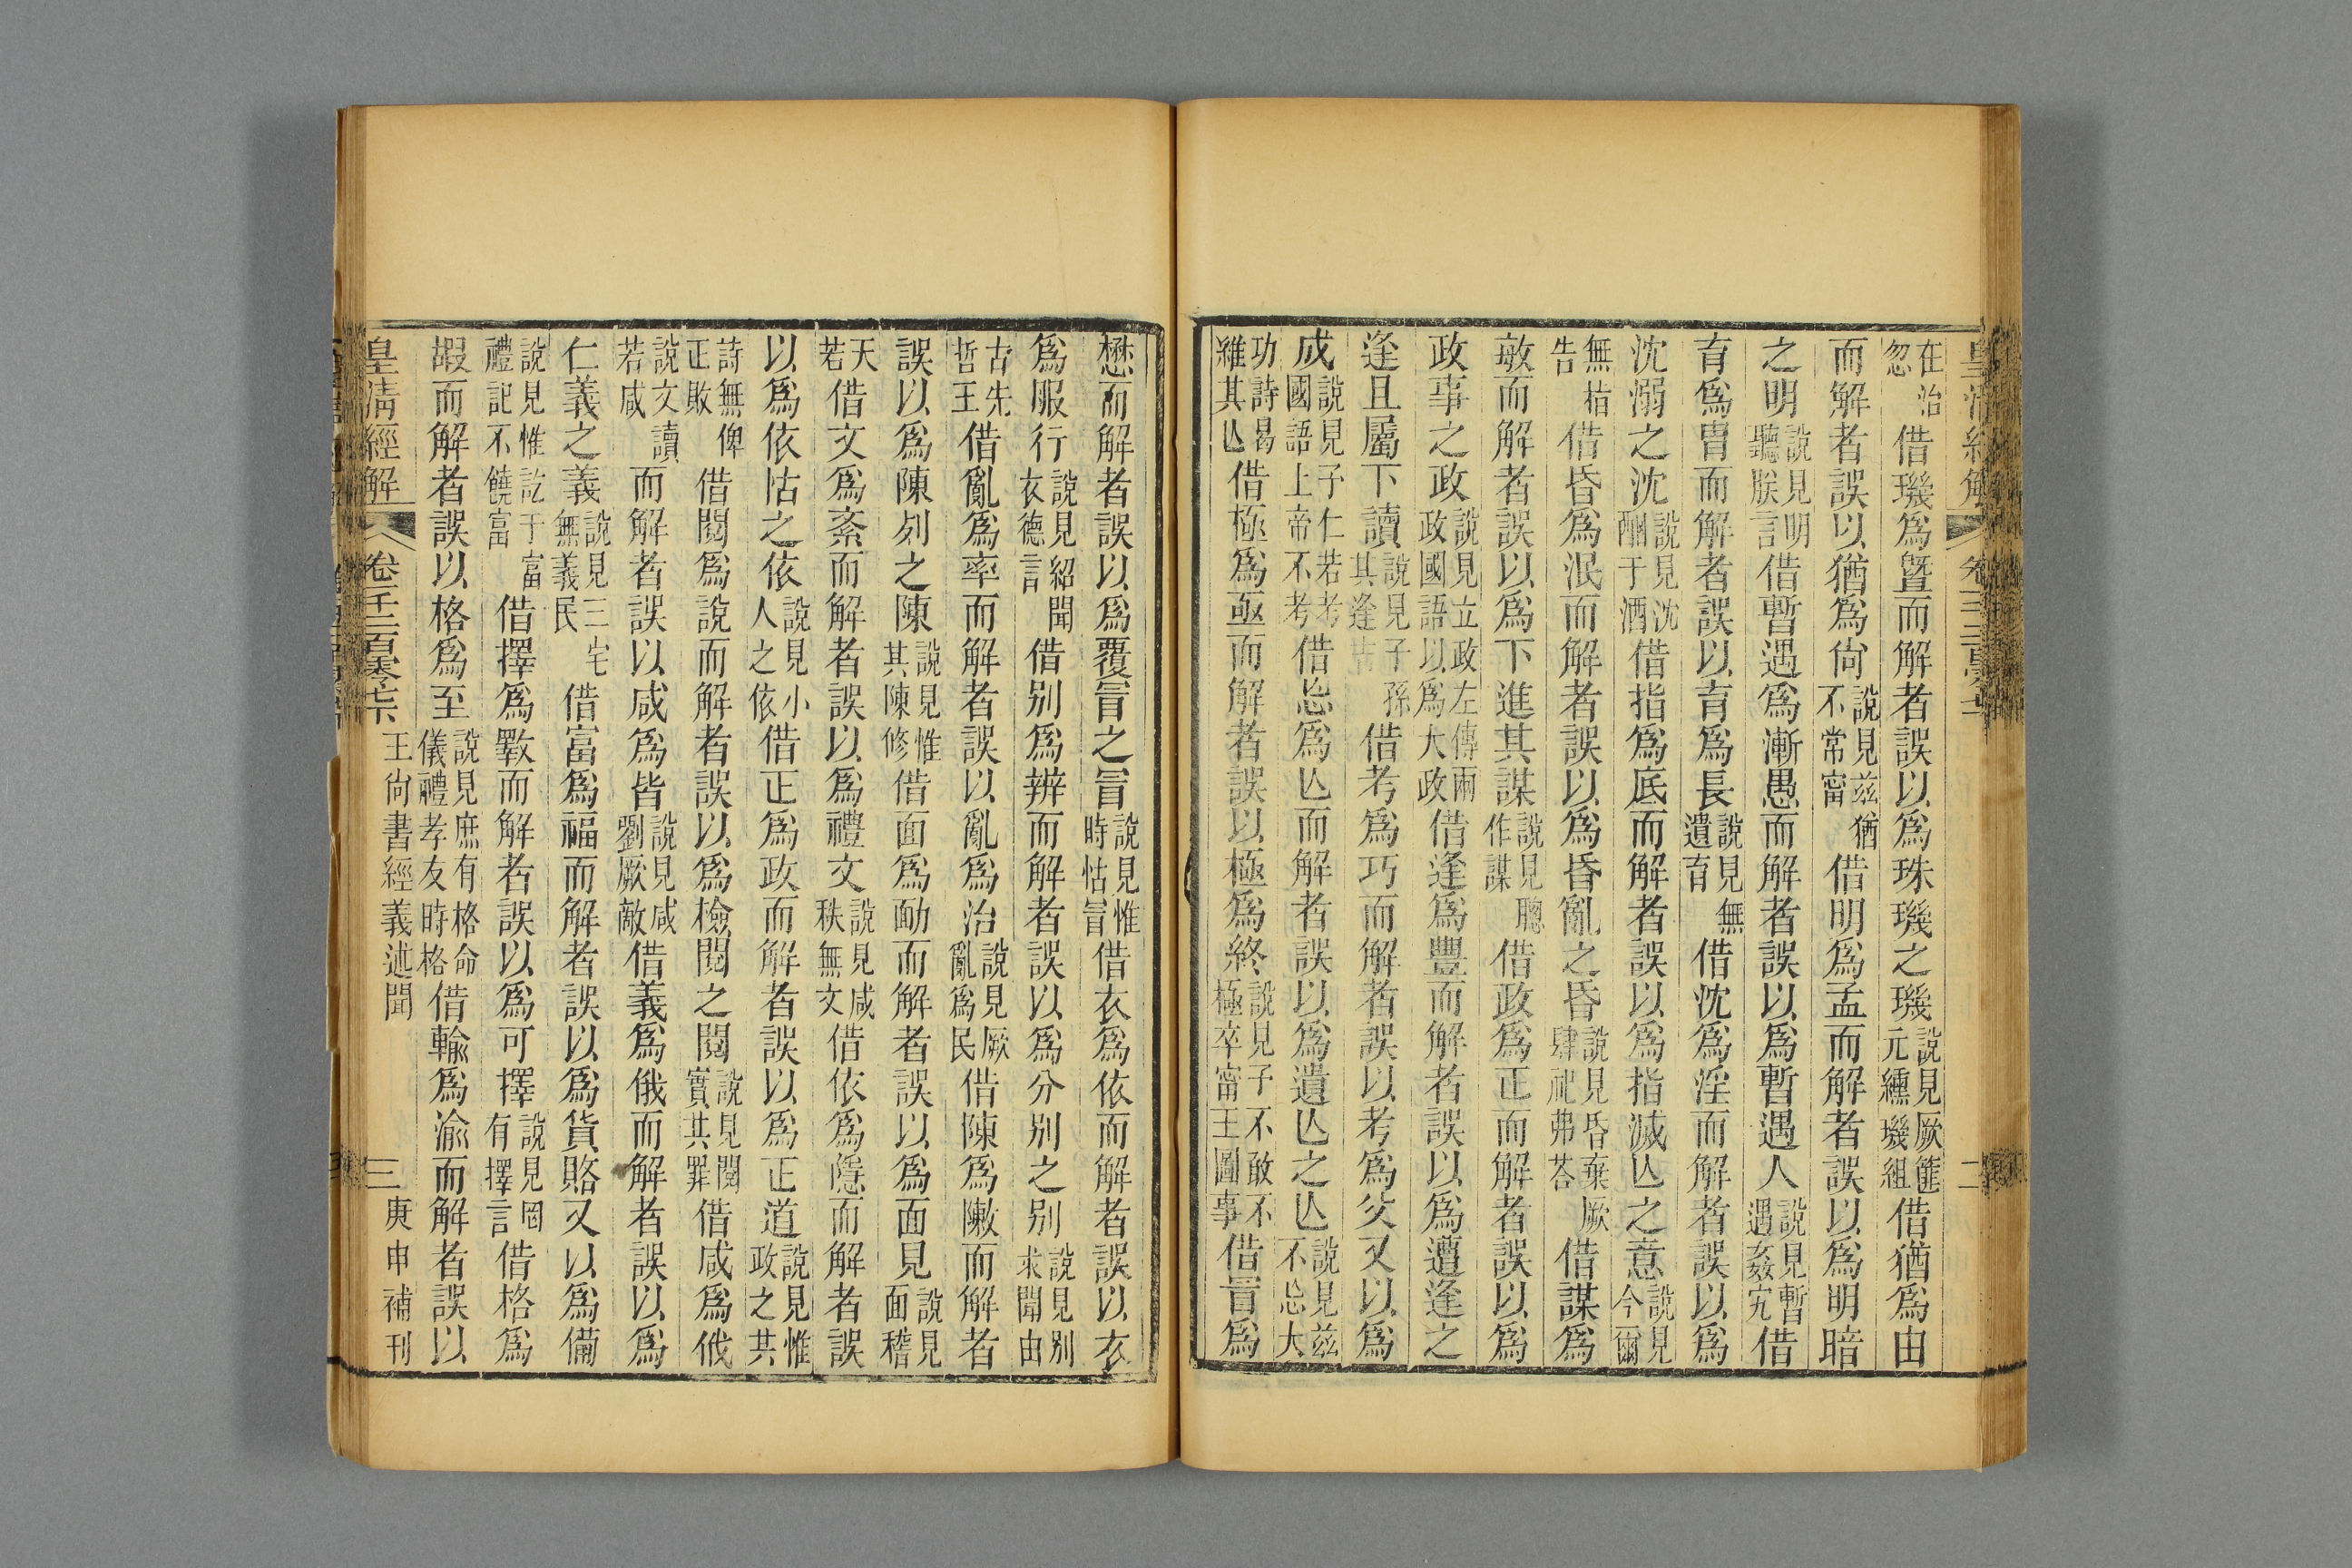 在治忽借璣爲曁而解者誤以爲珠璣之璣說見厥篚元纁璣組借猶爲由
而解者誤以猶爲尙說見兹猶不常甯借明爲孟而解者誤以爲明暗
之明說見明聽朕言借暫遇爲漸愚而解者誤以爲暫遇人說見暫遇姦宄借
育爲冑而解者誤以育爲長說見無遺育借沈爲淫而解者誤以爲
沈溺之沈說見沈酗于酒借指爲底而解者誤以爲指滅亾之意說見今爾
無指告借昏爲泯而解者誤以爲昏亂之昏說見昏棄厥肆祀弗荅借謀爲
敏而解者誤以爲下進其謀說見聰作謀借政爲正而解者誤以爲
政事之政說見立政左傳爾政國語以爲大政借逢爲豐而解者誤以爲遭逢之
逢且屬下讀說見子孫其逢吉借考爲巧而解者誤以考爲父又以爲
成說見子仁若考國語上帝不考借忘爲亾而解者誤以爲遺亾之亾說見兹不忘大
功詩曷維其亾借極爲亟而解者誤以極爲終說見子不敢不極卒甯王圖事借冒爲
懋而解者誤以爲覆冒之冒說見惟時怙冒借衣爲依而解者誤以衣
爲服行說見紹聞衣德言借别爲辨而解者誤以爲分别之别說見别求聞由
古先哲王借亂爲率而解者誤以亂爲治說見厥亂爲民借陳爲敶而解者
誤以爲陳列之陳說見惟其陳修借面爲勔而解者誤以爲面見說見面稽
天若借文爲紊而解者誤以爲禮文說見咸秩無文借依爲隱而解者誤
以爲依怙之依說見小人之依借正爲政而解者誤以爲正道說見惟政之共
詩無俾正敗借閱爲說而解者誤以爲檢閱之閱說見閱實其罪借咸爲㦰
說文讀若咸而解者誤以咸爲皆說見咸劉厥敵借義爲俄而解者誤以爲
仁義之義說見三宅無義民借富爲福而解者誤以爲貨賂又以爲備
說見惟訖于富禮記不饒富借擇爲斁而解者誤以爲可擇說見罔有擇言借格爲
嘏而解者誤以格爲至說見庶有格命儀禮孝友時格借輸爲渝而解者誤以
皇淸經解 卷千二百零七下 王尙書經義述聞 三 庚申補刊